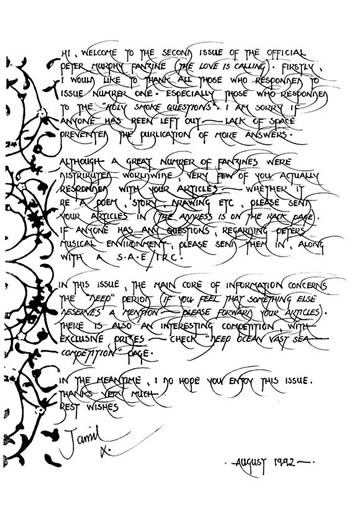 HI, WELCOME TO THE SECOND ISSUE OF THE OFFICIAL
PETER MURPHY FANZINE (THE LOVE IS CALLING). FIRSTLY,
I WOULD LIKE TO THANK ALL THOSE WHO RESPONDED TO
ISSUE NUMBER ONE. ESPECIALLY THOSE WHO RESPONDED
TO THE "HOLY SMOKE QUESTIONS". I AM SORRY IF
ANYONE HAS BEEN LEFT OUT — LACK OF SPACE
PREVENTED THE PUBLICATION OF MORE ANSWERS.
ALTHOUGH A GREAT NUMBER OF FANZINES WERE
DISTRIBUTED WORLDWIDE, VERY FEW OF YOU ACTUALLY
RESPONDED WITH YOUR ARTICLES — WHETHER IT
BE A POEM, STORY, DRAWING ETC, PLEASE SEND
YOUR ARTICLES IN (THE ADDRESS IS ON THE BACK PAGE).
IF ANYONE HAS ANY QUESTIONS, REGARDING PETERS
MUSICAL ENVIRONMENT, PLEASE SEND THEM IN, ALONG
WITH A S.A.E / I.R.C.
IN THIS ISSUE, THE MAIN CORE OF INFORMATION CONCERNS
THE "DEEP" PERIOD (IF YOU FEEL THAT SOMETHING ELSE
DESERVES A MENTION — PLEASE FORWARD YOUR ARTICLES).
THERE IS ALSO AN INTERESTING COMPETITION, WITH
EXCLUSIVE PRIZES — CHECK "DEEP OCEAN VAST SEA —
COMPETITION" PAGE.
IN THE MEANTIME, I DO HOPE YOU ENJOY THIS ISSUE.
THANKS VERY MUCH —
BEST WISHES
Jamil
X.
. — AUGUST 1992 — .